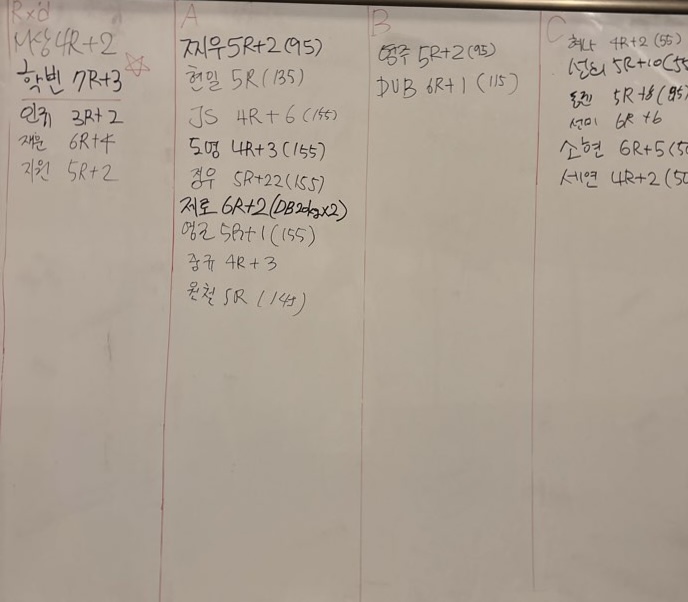 Rx'd
사상 4R+2
학빈 7R+3
인규 3R+2
재문 6R+4
지원 5R+2
A
찌우 5R+2 (95)
현일 5R (135)
JS 4R+6 (155)
도영 4R+3 (155)
경우 5R+22 (155)
제로 6R+2 (DB20kg×2)
영근 5R+1 (155)
중규 4R+3
원철 5R (145)
B
영주 5R+2 (95)
DUB 6R+1 (115)
C
혜나 4R+2 (55)
선희 5R+10 (55
5R+8 (95)
선미 6R+6
소현 6R+5 (50
세연 4R+2 (50